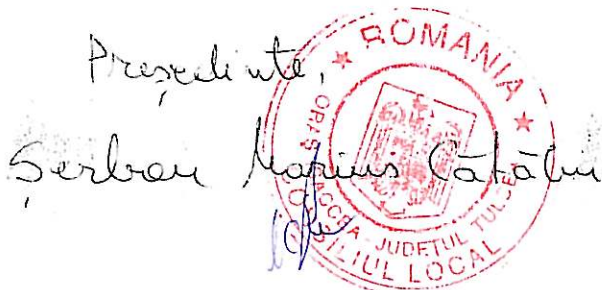 Președinte,
Șerban Marius Cătălin
★ ROMANIA ★
ORAȘ ISACCEA - JUDEȚUL TULCEA
CONSILIUL LOCAL